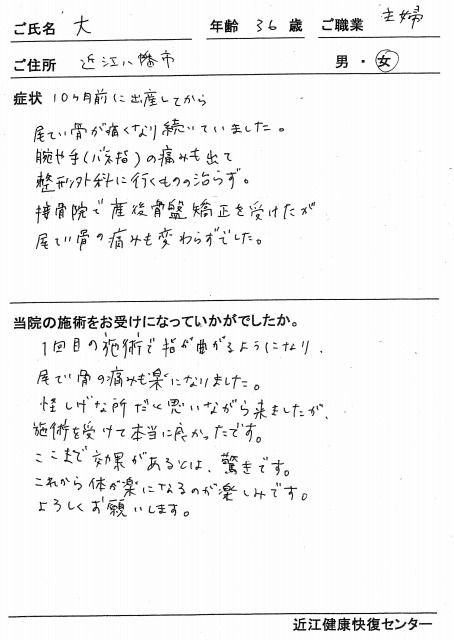 ご氏名 大 年齢 36 歳 ご職業 主婦
ご住所 近江八幡市 男・女
症状 10ヶ月前に出産してから
尾てい骨が痛くなり続いていました。
腕や手(バネ指)の痛みも出て
整形外科に行くものの治らず。
接骨院で産後骨盤矯正を受けたが
尾てい骨の痛みも変わらずでした。
当院の施術をお受けになっていかがでしたか。
1回目の施術で指が曲がるようになり、
尾てい骨の痛みも楽になりました。
怪しげな所だと思いながら来ましたが、
施術を受けて本当に良かったです。
ここまで効果があるとは、驚きです。
これから体が楽になるのが楽しみです。
よろしくお願いします。
近江健康快復センター